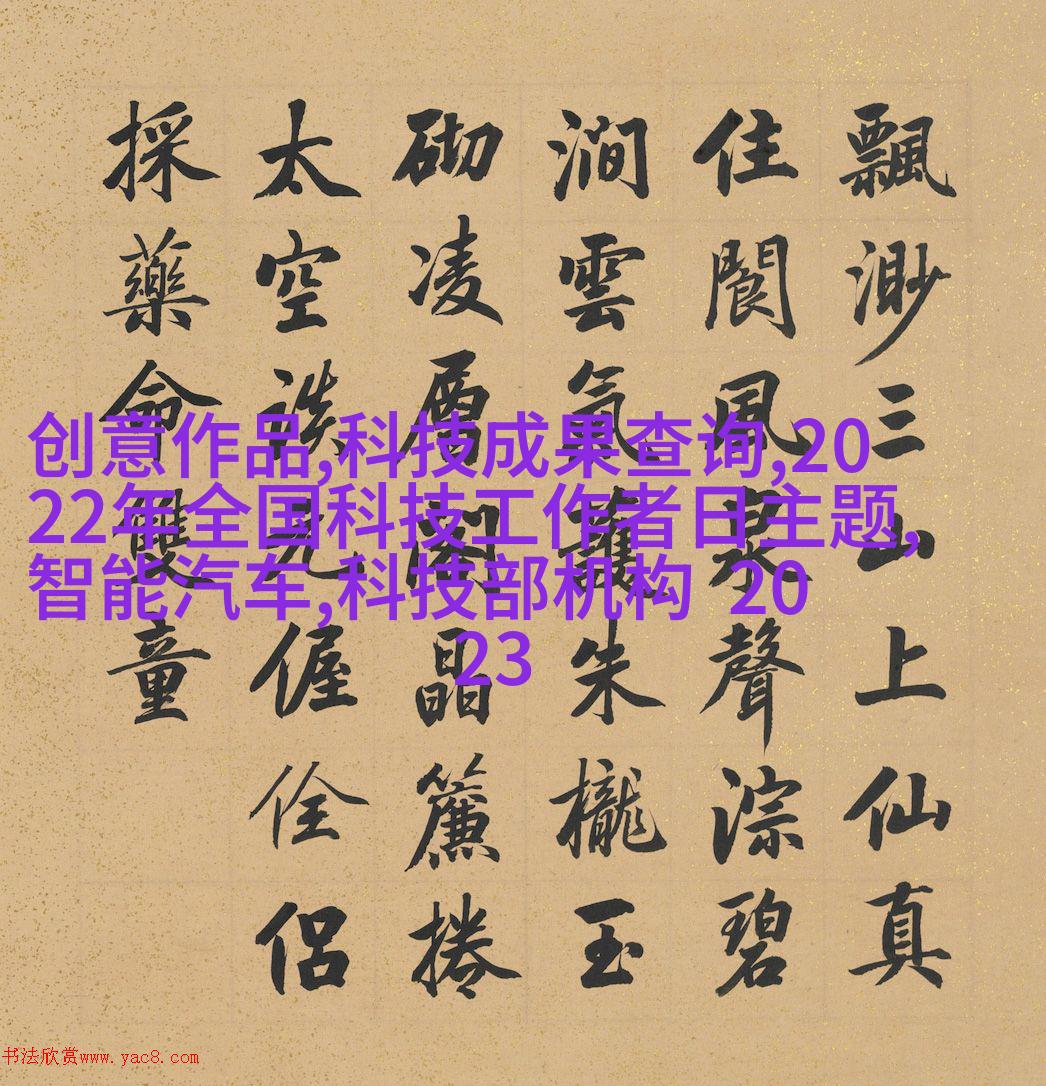 飄渺三山上仙真
住閬風泉聲淙碧
澗雲氣護朱櫳玉
砌凌層閣晶簾捲
太空談元偓佺侶
採藥命雙童
创意作品,科技成果查询,20
22年全国科技工作者日主题,
智能汽车,科技部机构 20
23
书法欣赏www.yac8.com